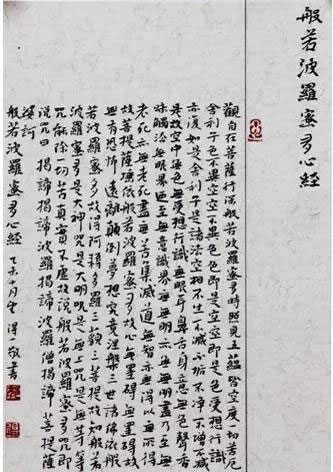 般若波羅蜜多心經
觀自在菩薩行深般若波羅蜜多時照見五蘊皆空度一切苦
舍利子色不異空空不異色色即是空空即是色受想行識
亦復如是舍利子是諸法空相不生不滅不垢不淨不增不減
是故空中無色無受想行識無眼耳鼻舌身意無色聲香
味觸法無眼界乃至無意識界無無明亦無無明盡乃至無
老死亦無老死盡無苦集滅道無智亦無得以無所得
故菩提薩埵依般若波羅蜜多故心無罣礙無罣礙故
無有恐怖遠離顛倒夢想究竟涅槃三世諸佛依般
若波羅蜜多故得阿耨多羅三藐三菩提故知般若
波羅蜜多是大神咒是大明咒是無上咒是無等等
咒能除一切苦真實不虛故說般若波羅蜜多咒即
說咒曰揭諦揭諦波羅揭諦波羅僧揭諦菩提薩
婆訶
般若波羅蜜多心經 乙未十月 得一敬書